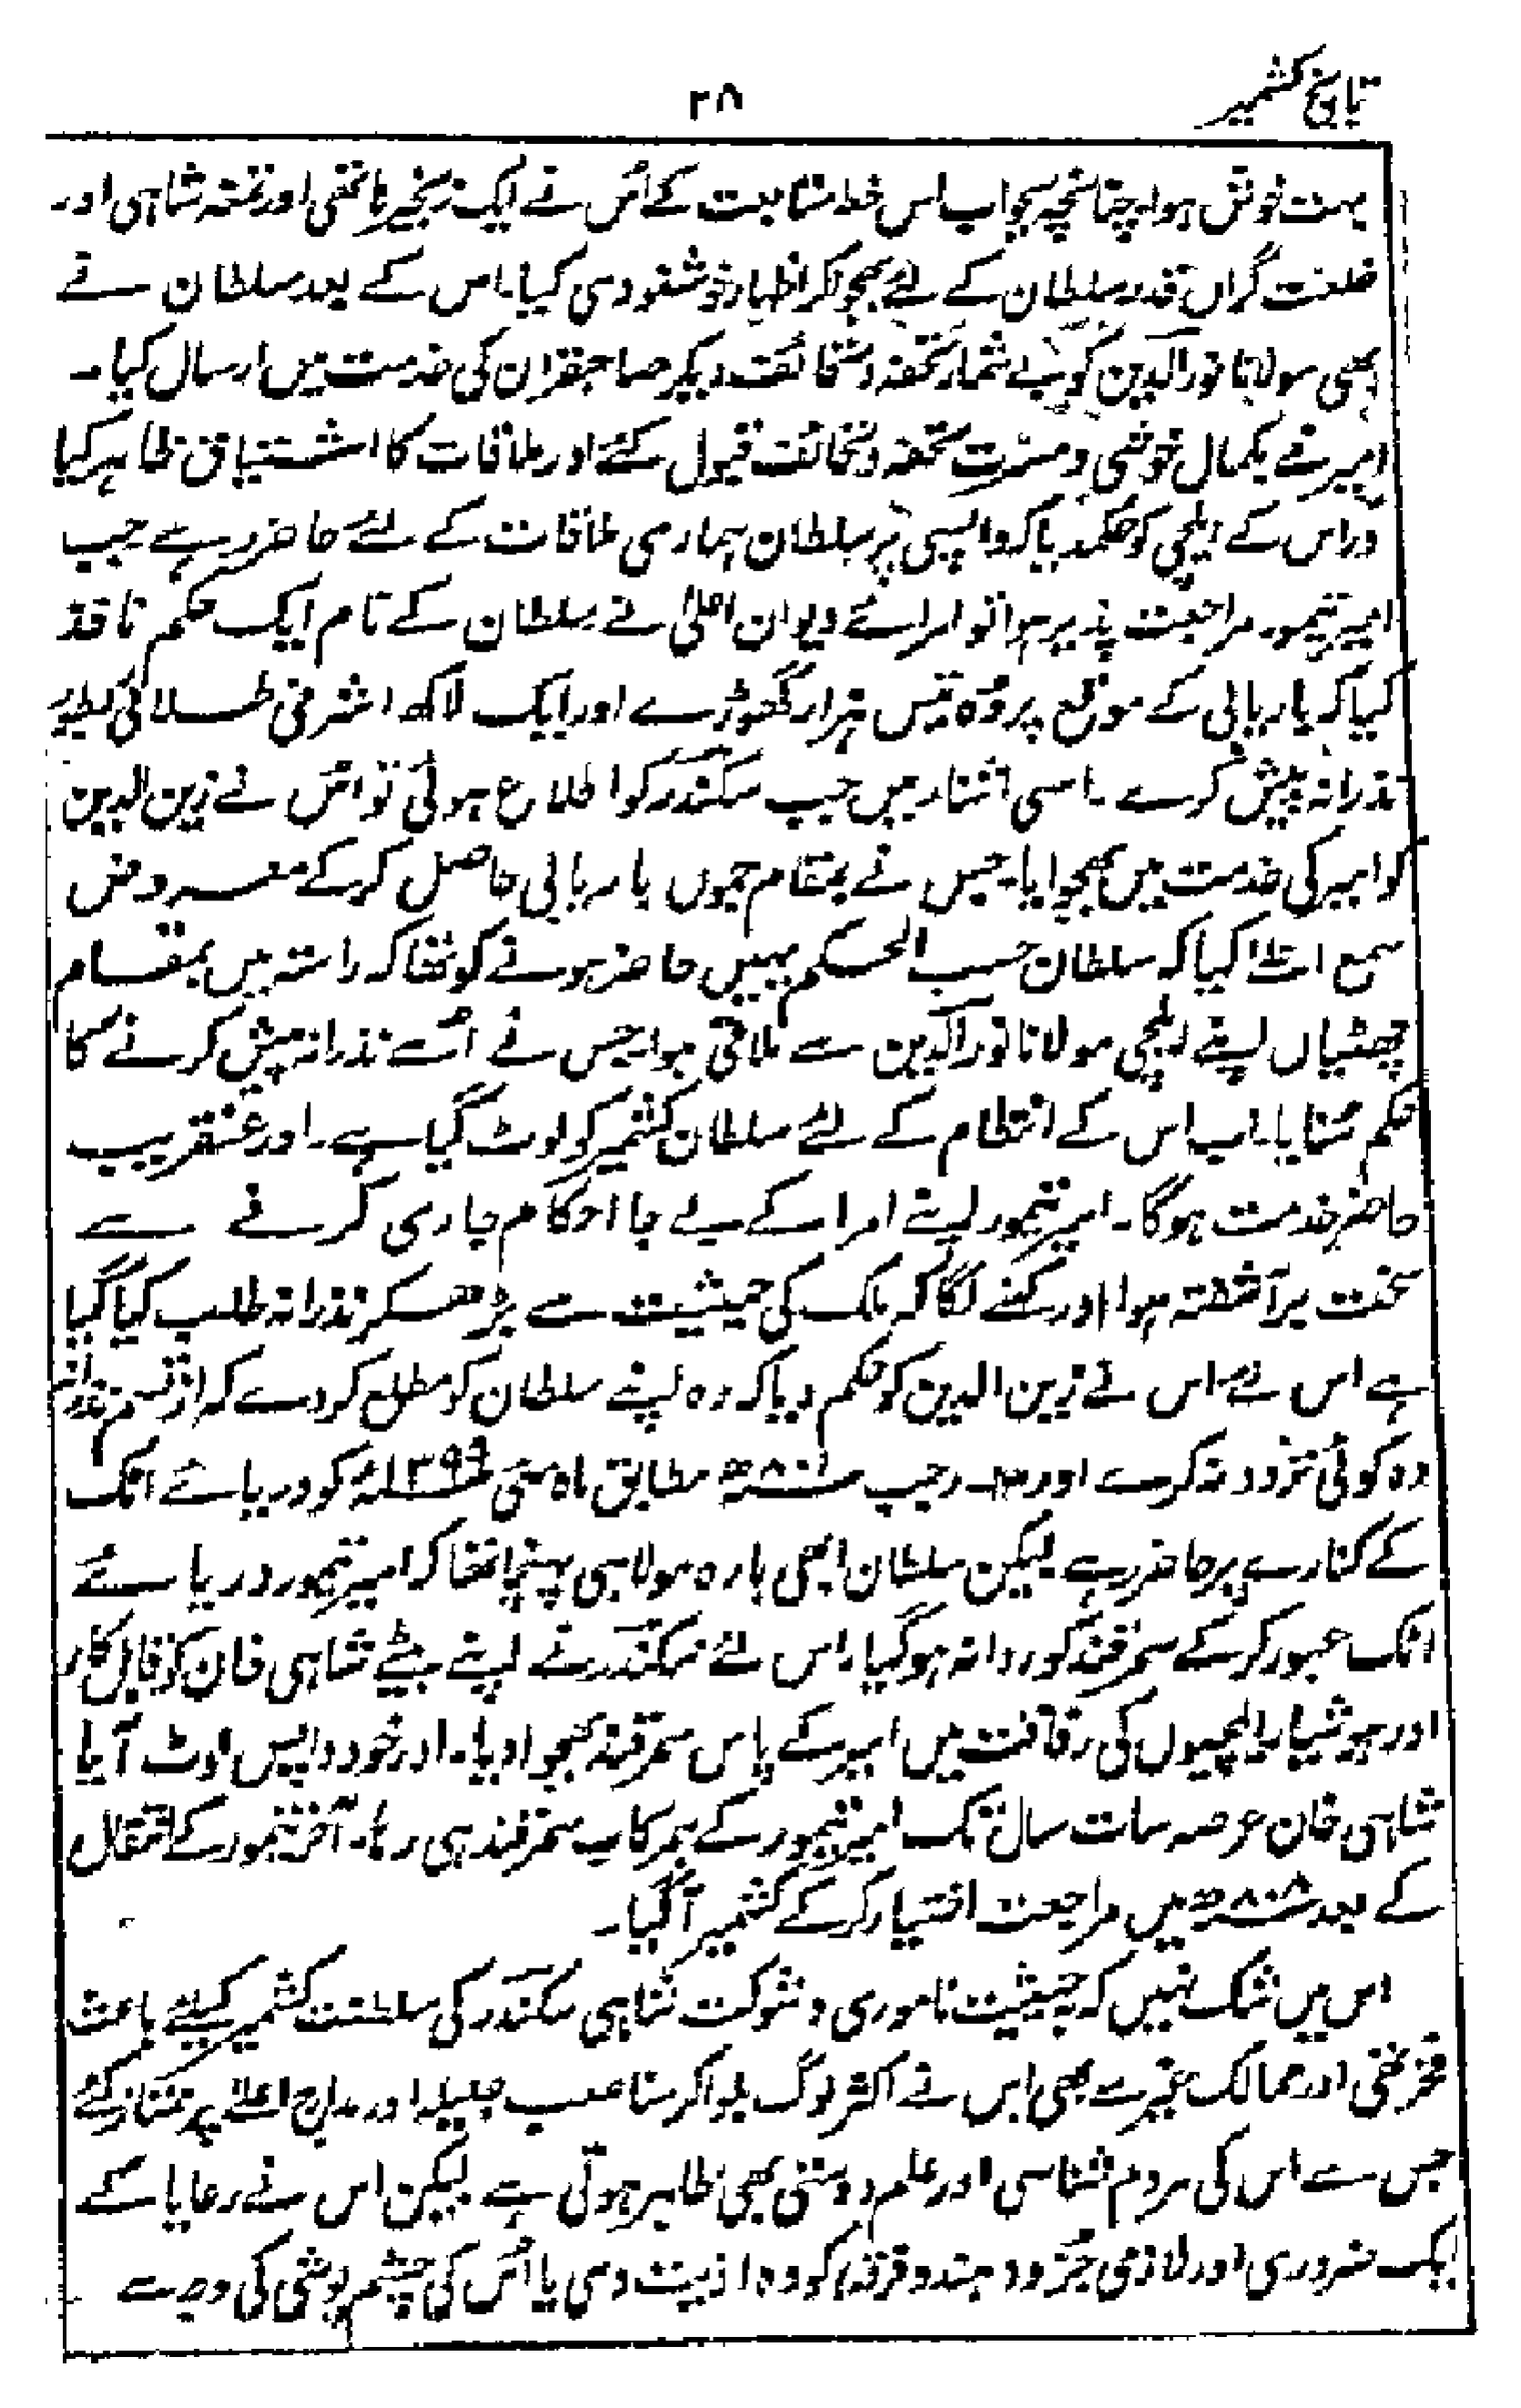 تاریخ کشمیر
۲۸
بہت خوش ہوا۔ چنانچہ بجواب اس خط متابعت کے اُس نے ایک زنجیر ہاتھی اور تمغہ شاہی اور
خلعت گراں قدر سلطان کے لئے بھجوا کر اظہار خوشنودی کیا۔ اس کے بعد سلطان نے
بھی مولانا نورالدین کو بے شمار تحفہ و تحائف دیکر صاحبقران کی خدمت میں ارسال کیا۔
امیر نے بکمال خوشی و مسرّت تحفہ و تحائف قبول کئے اور ملاقات کا اشتیاق ظاہر کیا
اور اس کے ایلچی کو حکم دیا کہ واپسی پر سلطان ہماری ملاقات کے لئے حاضر رہے جب
امیر تیمور مراجعت پذیر ہوا تو امرائے دیوان اعلیٰ نے سلطان کے نام ایک حکم نافذ
کیا کہ باریابی کے موقع پر وُہ تیس ہزار گھوڑے اور ایک لاکھ اشرفی طلائی بطور
نذرانہ پیش کرے۔ اسی اثنا میں جب سکندر کو اطلاع ہوئی تو اُس نے زین الدین
کو امیر کی خدمت میں بھجوایا۔ جس نے بمقام جموں باریابی حاصل کر کے معروض
سمع اعلیٰ کیا کہ سلطان حسب الحکم یہیں حاضر ہونے کو تھا کہ راستہ میں بمقام
چھٹیاں اپنے ایلچی مولانا نورالدین سے ملاقی ہوا۔ جس نے اُسے نذرانہ پیش کرنے کا
حکم سُنایا۔ اب اس کے انتظام کے لئے سلطان کشمیر کو لوٹ گیا ہے۔ اور عنقریب
حاضر خدمت ہوگا۔ امیر تیمور اپنے امرا کے بے جا احکام جاری کرنے سے
سخت برآشفتہ ہوا اور کہنے لگا کہ ملک کی حیثیت سے بڑھکر نذرانہ طلب کیا گیا
ہے اس لئے اس نے زین الدین کو حکم دیا کہ وہ اپنے سلطان کو مطلع کر دے کہ از قسم نذرانہ
وہ کوئی تردد نہ کرے اور رجب ۸۰۱ھ مطابق ماہ مئی ۱۳۹۹ء کو دریائے اٹک
کے کنارے پر حاضر رہے لیکن سلطان ابھی بارہ مولا ہی پہنچا تھا کہ امیر تیمور دریائے
اٹک عبور کر کے سمرقند کو روانہ ہو گیا۔ اس لئے سکندر نے اپنے بیٹے شاہی خان کو قابل کار
اور ہوشیار ایلچیوں کی رفاقت میں امیر کے پاس سمرقند بھجوا دیا۔ اور خود واپس لوٹ آیا
شاہی خان عرصہ سات سال تک امیر تیمور کے ہمرکاب سمرقند ہی رہا۔ آخر تیمور کے انتقال
کے بعد ۸۰۸ھ میں مراجعت اختیار کر کے کشمیر آ گیا۔
اس میں شک نہیں کہ بہ حیثیت ناموری و شوکت شاہی سکندر کی سلطنت کشمیر کیلئے باعث
فخر تھی اور ممالک غیر سے بھی اس نے اکثر لوگ بلوا کر مناصب جلیلہ اور مدارج اعلےٰ پر ممتاز کئے
جس سے اس کی مردم شناسی اور علم دوستی بھی ظاہر ہوتی ہے لیکن اس نے رعایا کے
ایک ضروری اور لازمی جُزو (ہندو فرقہ) کو وہ اذیت دی یا اُس کی چشم پوشی کی وجہ سے